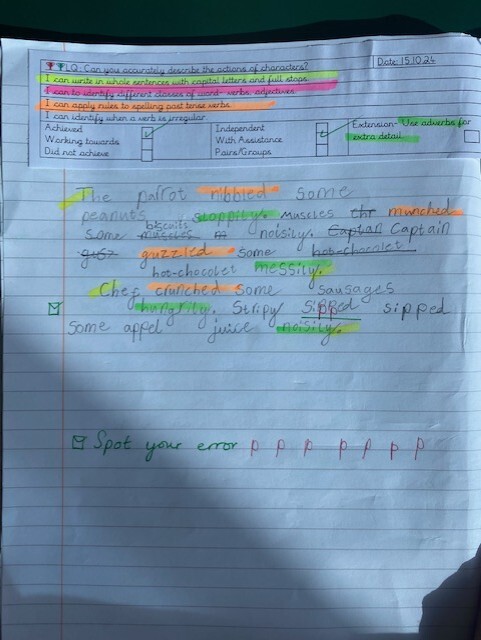 LQ: Can you accurately describe the actions of characters? Date: 15.10.24
I can write in whole sentences with capital letters and full stops.
I can to identify different classes of word- verbs, adjectives.
I can apply rules to spelling past tense verbs.
I can identify when a verb is irregular.
Achieved Independent Extension- Use adverbs for
Working towards With Assistance extra detail
Did not achieve Pairs/Groups
The parrot nibbled some
peanuts sloppily. Muscles thr munched
biscuits
some muscles n noisily. Captan Captain
guzzled some hot-chocolet
hot-chocolet messily.
Chef crunched some sausages
hungrily. Stripy sipped sipped
some appel juice noisily.
Spot your error p p p p p p p